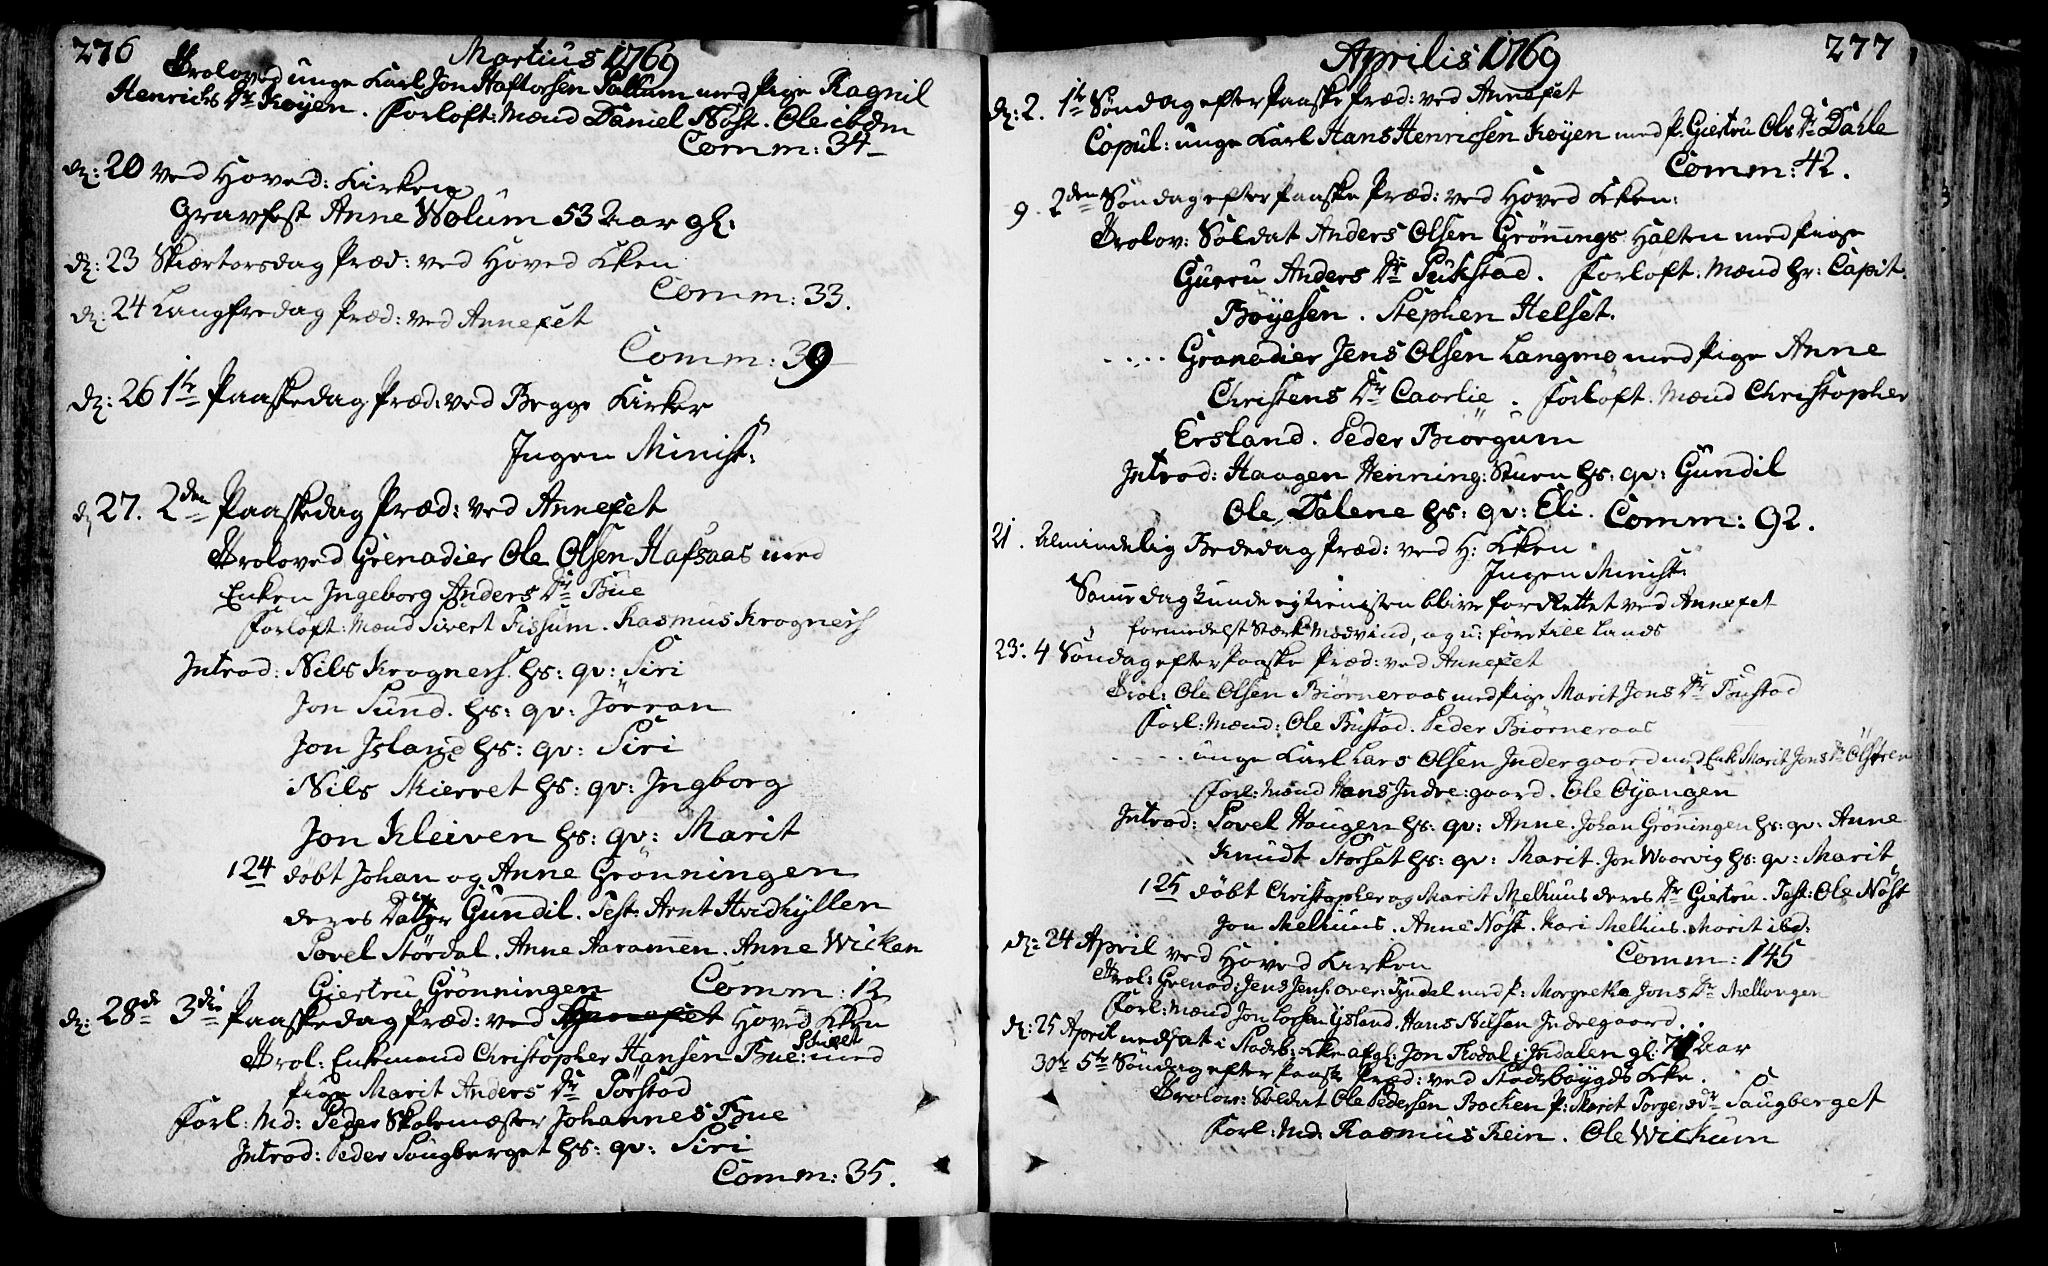 276
Martius 1769
Troloved unge Karl Jon Haftorsen Sallum med Pige Ragnil
Henrichs Dr Køyen. Forloft: Mænd Daniel Nøst. Ole ibdm
Comm: 34
d: 20 ved Hoved: Kirken
Gravfest Anne Wolum 53 Aar gl:
d: 23 Skiertorsdag Præd: ved Hoved Kken
Comm: 33.
d: 24 Langfredag Præd: ved Annexet
Comm: 39
d: 26 1te Paaskedag Præd: ved Begge Kirker
Ingen Minist:
d 27. 2den Paaskedag Præd: ved Annexet
Troloved Grenadier Ole Olsen Hafsaas med
Enken Ingeborg Anders Dr Bue
Forloft: Mænd Sivert Fissum. Rasmus Krognes
Introd: Nils Krognes hs: qv: Siri
Jon Sund. hs: qv: Jörran
Jon Island hs: qv: Siri
Nils Mierret hs: qv: Ingborg
Jon Kleiven hs: qv: Marit
124 døbt Johan og Anne Grönningen
deres Datter Gundil. Test: Arnt Hvidhyllen
Povel Stördal. Anne Aaramen. Anne Wicken
Giertru Grönningen Comm: 12
d: 28de 3die Paaskedag Præd: ved Annexet Hoved Kken
Trol: Enkemand Christopher Hansen Bue med
Pige Marit Anders Dr Törstad
Forl: Md: Peder Skolemester Johannes Bue
Introd: Peder Saugberget hs: qv: Siri
Comm: 35.
Aprilis 1769
277
d: 2. 1te Søndag efter Paaske Præd: ved Annexet
Copul: unge Karl Hans Henricsen Køyen med P. Giertru Ols Dr Dahle
Comm: 42.
9. 2den Søndag efter Paaske Præd: ved Hoved Kken:
Trolov: Soldat Anders Olsen Grönnings Halten med Pige
Gurru Anders Dr Pukstad. Forloft: Mænd Hr: Capit.
Boyesen. Stephen Helset.
.... Granadier Jens Olsen Langmo med Pige Anne
Christens Dr Caarlie. Forloft. Mænd Christopher
Ersland. Peder Biörgum
Introd: Haagen Henning: Sturn hs: qv: Gundil
Ole Dalene hs: qv: Eli. Comm: 92.
21. Almindelig Bededag Præd: ved H: Kken
Ingen Minist:
Samme dag kunde ej tienisten blive forRettet ved Annexet
formedelst stærk Modvind, og u: före till Lands
23: 4 Søndag efter Paaske Præd: ved Annexet
Trol: Ole Olsen Biörneraas med Pige Marit Jons Dr Bustad
Forl: Mænd: Ole Bustad. Peder Biörneraas
.... unge Karl Lars Olsen Indergaard med Enk: Marit Jons Dr
Forl: Mænd Hans Indre: gaard. Ole Oyangen
Introd: Povel Haugen hs: qv: Anne. Johan Gröningen hs: qv: Anne
Knudt Storset hs: qv: Marit. Jon Woorvig hs: qv: Marit
125 döbt Christopher og Marit Melhuus deres Dr Giertru. Test: Ole Nöst
Jon Melhuus. Anne Nöst. Kari Melhus. Marit ibd:
Comm: 145
d: 24 April ved Hoved Kirken
Trol: Grenad: Jens Jens: over: Tyndel med P: Margrethe Jons Dr Mellongen
Forl: Mænd Jon Larsen Ysland. Hans Nilsen Indregaard.
d: 25 April nedsat i Stadsb: Kke afgl: Jon Flodal i Indalen gl: 71 Aar
30te 5te Søndag efter Paaske Præd: ved Stadsboygds Kke.
Trolov: Soldat Ole Pedersen Bocken P: Marit Torgers Dr Saugberget
Forl: Md. Rasmus Rein. Ole Wickum